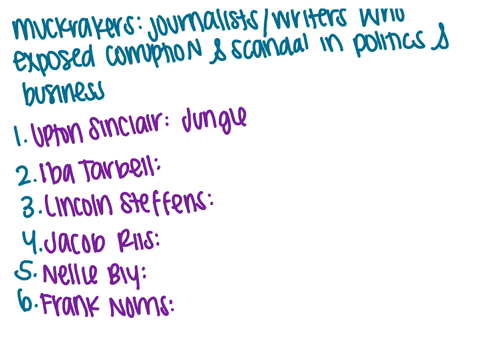 muckrakers: journalists/writers who
exposed corruption & scandal in politics &
business
1. Upton Sinclair: Jungle
2. Iba Tarbell:
3. Lincoln Steffens:
4. Jacob Riis:
5. Nellie Bly:
6. Frank Norris: